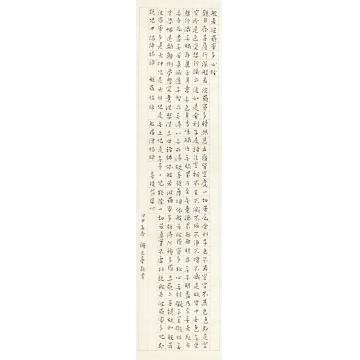 般若波羅蜜多心經
觀自在菩薩行深般若波羅蜜多時照見五蘊皆空度一切苦厄舍利子色不異空空不異色色即是
空空即是色受想行識亦復如是舍利子是諸法空相不生不滅不垢不淨不增不減是故空中無色無受
想行識無眼耳鼻舌身意無色聲香味觸法無眼界乃至無意識界無無明亦無無明盡乃
至無老死亦無老死盡無苦集滅道無智亦無得以無所得故菩提薩埵依般若波羅蜜多故心無罣礙無罣礙故無有恐
怖遠離顛倒夢想究竟涅槃三世諸佛依般若波羅蜜多故得阿耨多羅三藐三菩提故知般若
波羅蜜多是大神咒是大明咒是無上咒是無等等咒能除一切苦真實不虛故說般若波羅蜜多咒即
說咒曰揭諦揭諦 般羅揭諦 般羅僧揭諦 菩提薩婆訶